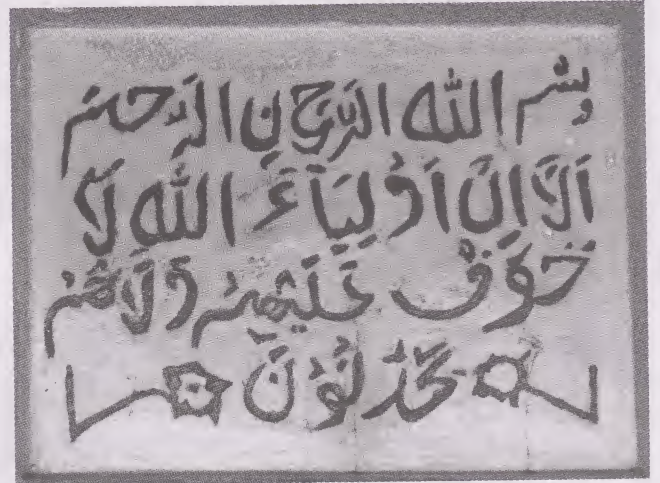 بِسْمِ اللّٰهِ الرَّحْمٰنِ الرَّحِيْمِ
اَلَاۤ اِنَّ اَوْلِيَآءَ اللّٰهِ لَا
خَوْفٌ عَلَيْهِمْ وَلَا هُمْ
يَحْزَنُوْنَ